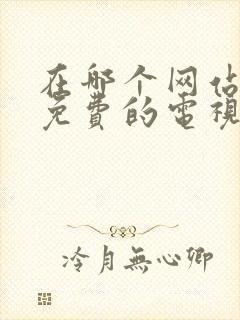 在哪个网站
免費的電視
冷月無心卿